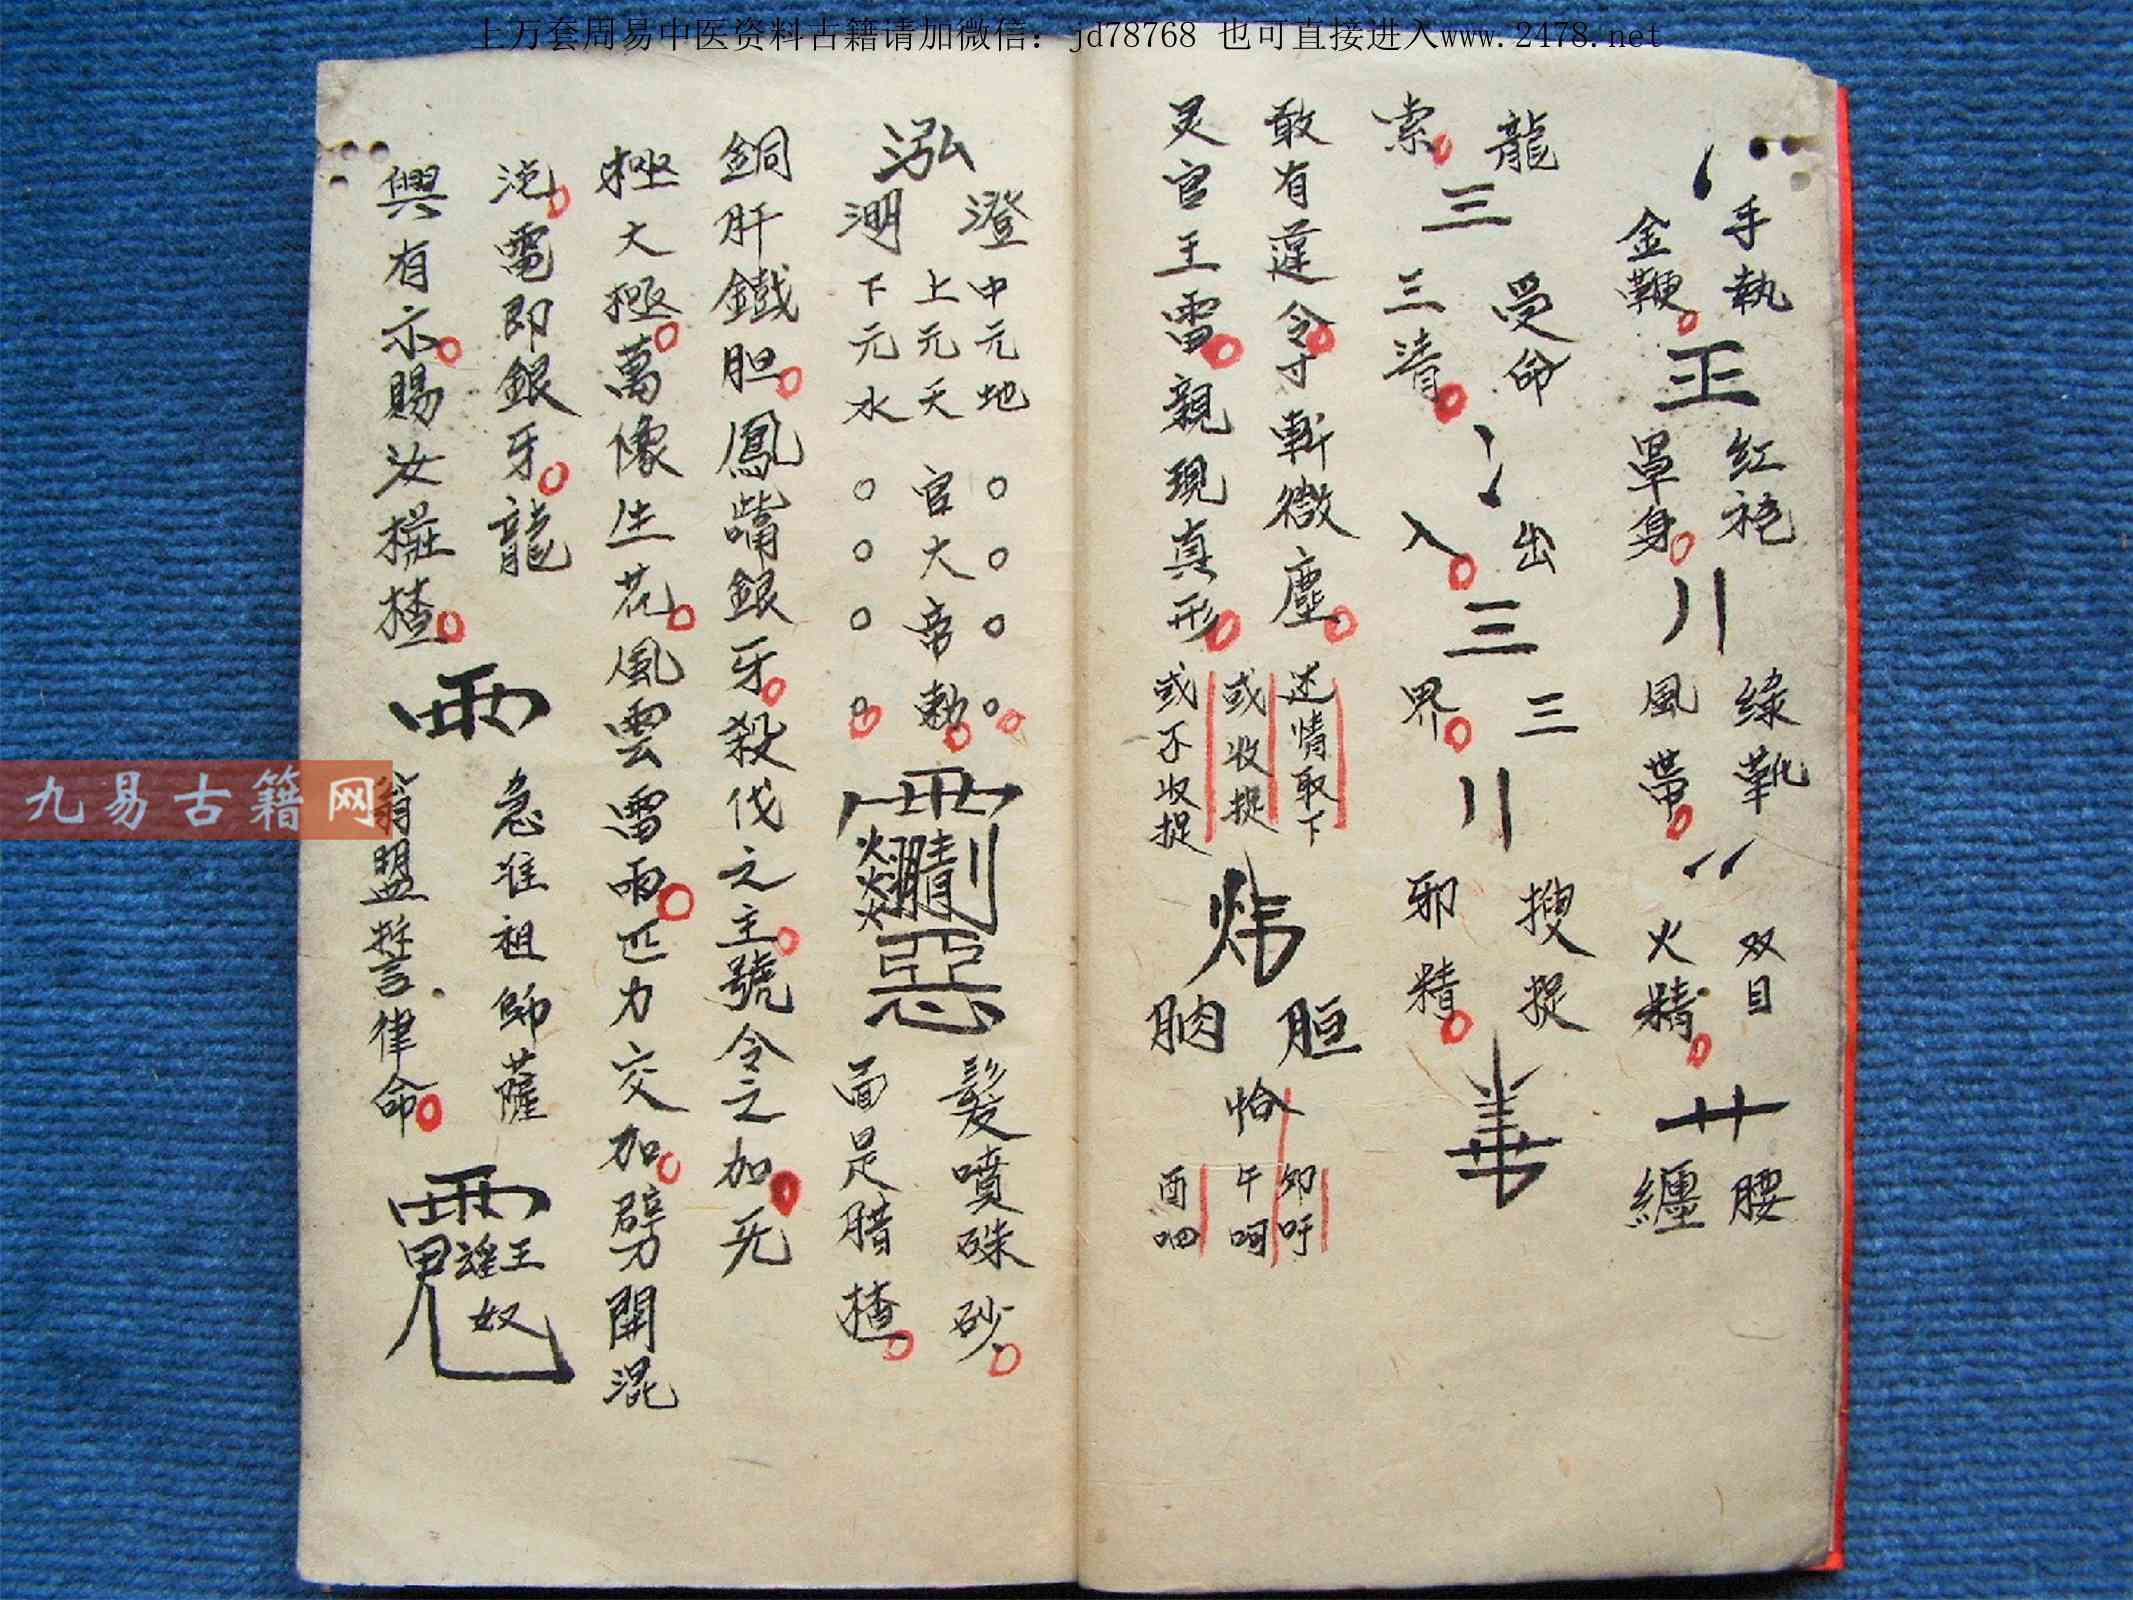 上万套周易中医资料古籍请加微信：jd78768 也可直接进入www.2478.net
手執
金鞭
紅袍
罩身
綠靴
風帶
双目
火精
腰
纏
龍
索
三
受命
三清
出
入
三
三
界
搜捉
邪精
敢有違令寸斬微塵
灵官王雷親現真形
述情取下
或收捉
或不收捉
炜
胆
肭
恰
卯吁
午呵
酉呬
泓
澄
渊
中元地
上元天官大帝勅
下元水
惡
髮噴硃砂
面是腊楂
銅肝鐵胆鳳嘴銀牙殺伐之主號令之加无
極大極萬像生花風雲雷雨匹力交加劈開混
沌電即銀牙龍
與有示賜汝樁楂
雨
急准祖師薩
翁盟誓律命
王
奴
九易古籍网